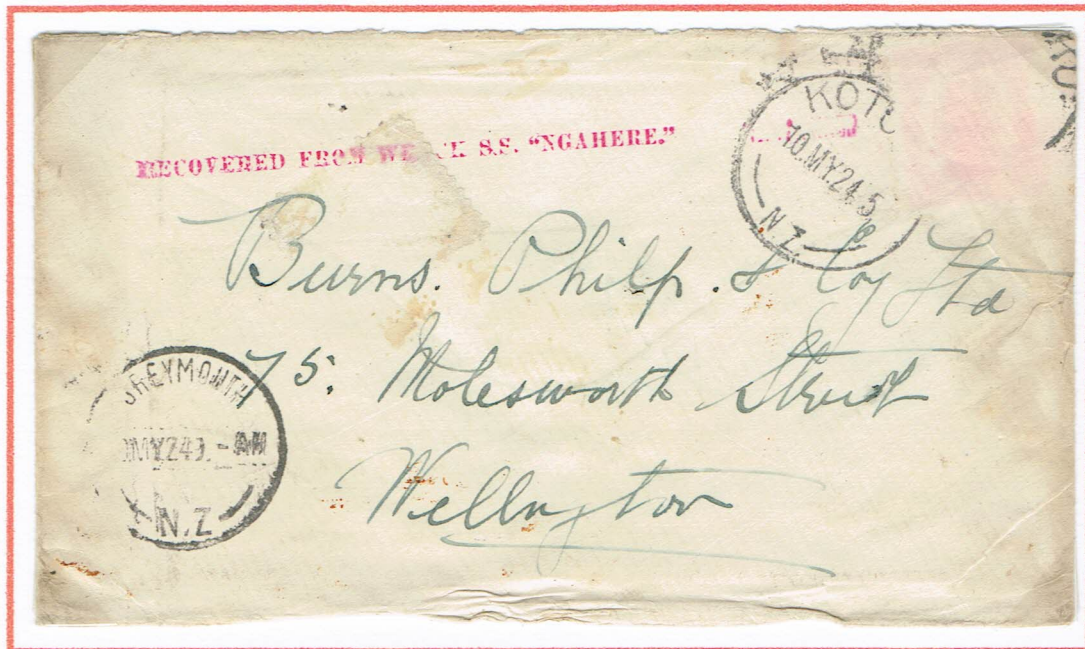 RECOVERED FROM WRECK S.S. “NGAHERE.”
KOTU
10.MY.24.5
N.Z
Burns. Philp. & Coy Ltd
75. Molesworth Street
Wellington
GREYMOUTH
MY24
N.Z